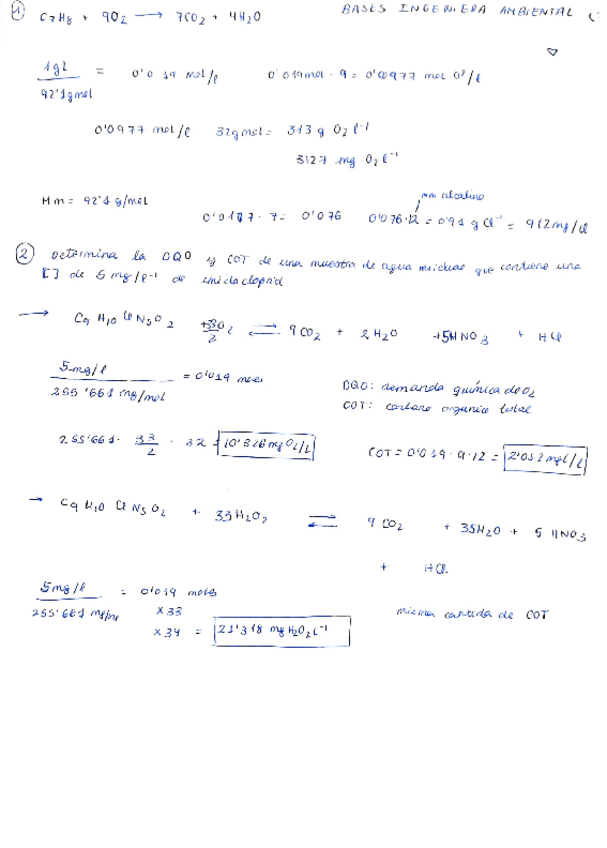 BASES INGENIERA AMBIENTAL
1) C7H8 + 9O2 → 7CO2 + 4H2O
1 gL / 92'1gmol = 0'0 19 mol/l 0'019mol · 9 = 0'0977 mol O²/l
0'0977 mol/l 32gmol = 313 g O2 l⁻¹
3127 mg O2 l⁻¹
Mm = 92'1 g/mol mm alcalino
0'0177 · 7 = 0'076 0'076·12 = 0'91 g Cl⁻¹ = 912mg/cl
2) Determina la DQO y COT de una muestra de agua residual que contiene una
[] de 5 mg/l⁻¹ de imidacloprid
→ C9 H10 Cl N5 O2 +33/2 O2 ⇌ 9CO2 + 2H2O +5HNO3 + HCl
5mg/l / 255'661 mg/mol = 0'019 moles
DQO: demanda química de O2
COT: carbono organico total
255'661 · 33/2 · 32 = 10'326mgO2/L COT = 0'019 · 9 · 12 = 2'052 mgC/L
→ C9 H10 Cl N5 O2 + 33H2O2 ⇌ 9 CO2 + 35H2O + 5 HNO3
+ HCl
5mg/l / 255'661 mg/m = 0'019 moles
x 33 misma cantida de COT
x 34 = 21'318 mg H2O2 L⁻¹